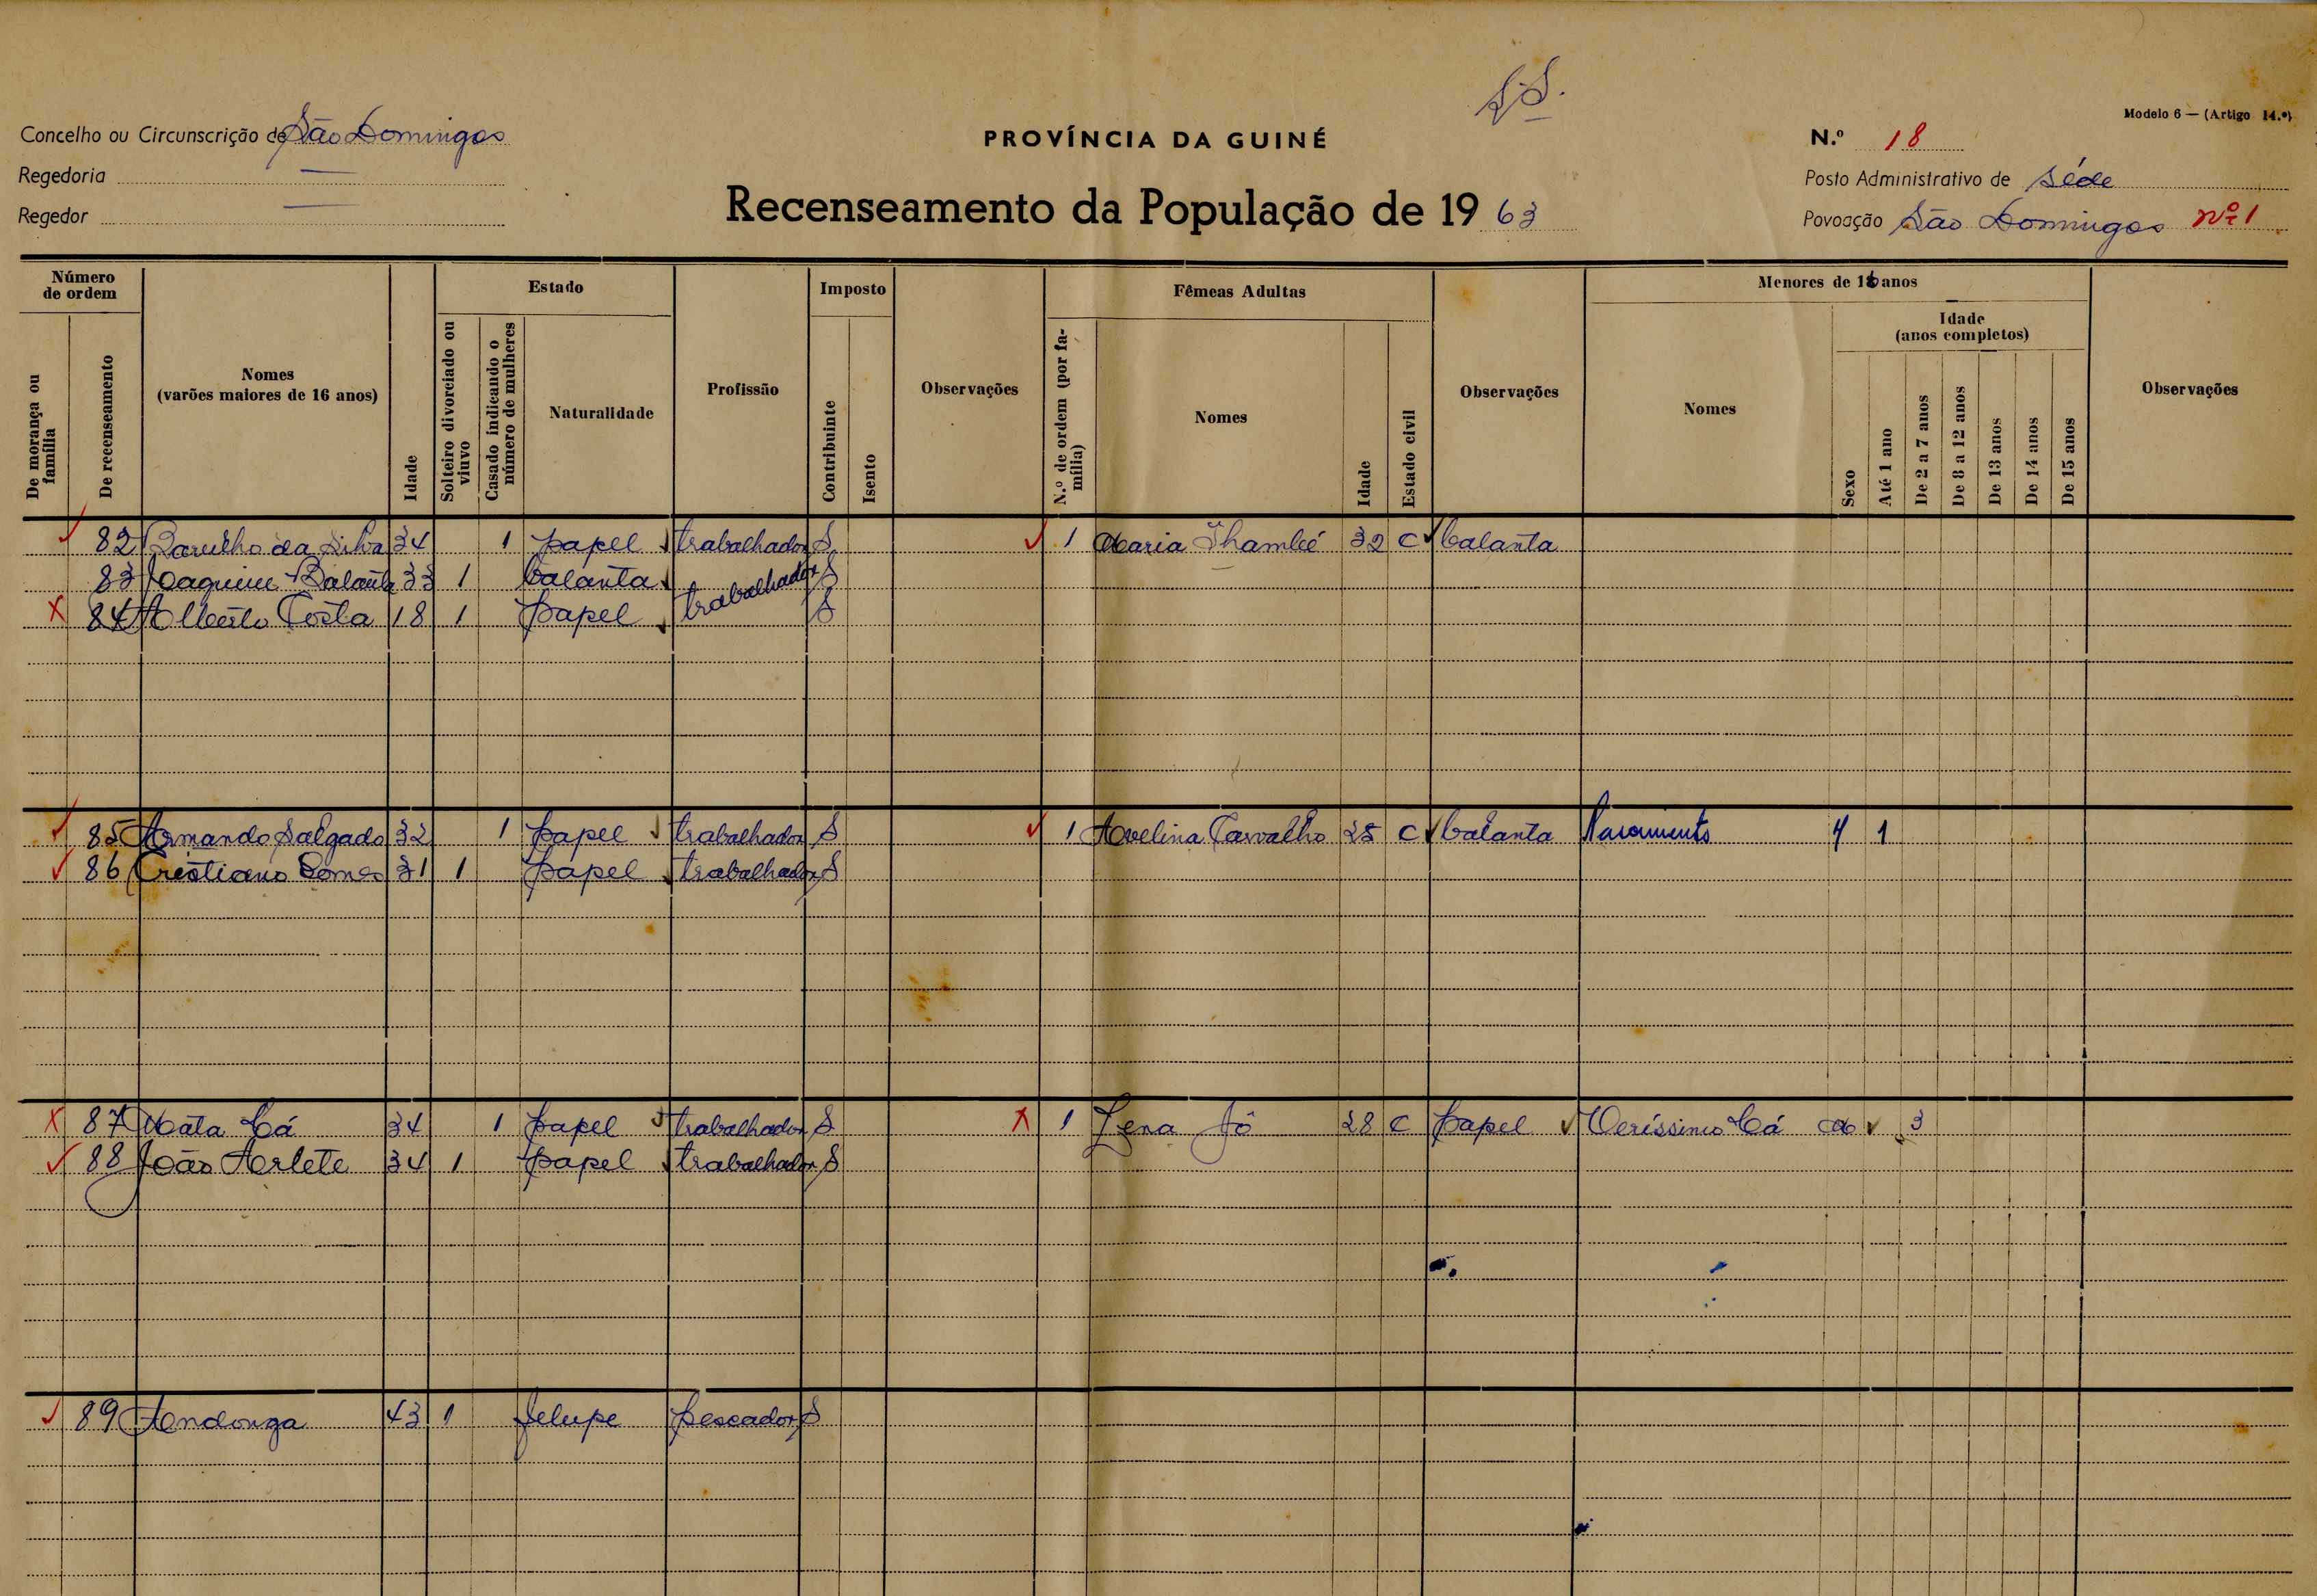 S.S.
Modelo 6 — (Artigo 14.º)
Concelho ou Circunscrição de São Domingos
PROVÍNCIA DA GUINÉ
N.º 18
Regedoria —
Posto Administrativo de Séde
Regedor —
Recenseamento da População de 19 63
Povoação São Domingos nº 1
Número de ordem
De morança ou família
De recenseamento
Nomes
(varões maiores de 16 anos)
Idade
Estado
Solteiro divorciado ou viuvo
Casado indicando o número de mulheres
Naturalidade
Profissão
Imposto
Contribuinte
Isento
Observações
Fêmeas Adultas
N.º de ordem (por família)
Nomes
Idade
Estado civil
Observações
Menores de 16 anos
Nomes
Sexo
Idade
(anos completos)
Até 1 ano
De 2 a 7 anos
De 8 a 12 anos
De 13 anos
De 14 anos
De 15 anos
Observações
✓ 82 da Silva 34 1 papel ✓ trabalhador S ✓ 1 Maria 32 C ✓ balanta
83 Joaquim Balanta 33 1 balanta trabalhador S
X 84 Alberto Costa 18 1 papel S
✓ 85 Armando Salgado 32 1 papel ✓ trabalhador S ✓ 1 Avelina Carvalho 28 C ✓ balanta Nascimento 1
✓ 86 Cristiano Gomes 31 1 papel trabalhador S
X 87 Mata Cá 34 1 papel ✓ trabalhador S X 1 Lena Jô 28 C papel ✓ Veríssimo Cá ✓ 3
✓ 88 João Arlete 34 1 papel trabalhador S
✓ 89 Andonga 43 1 felupe pescador S